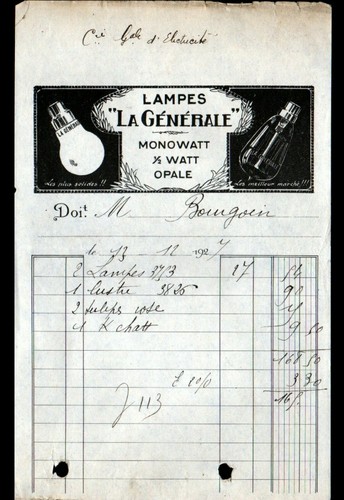 Cie Gale d'Electricité
LAMPES
"LA GÉNÉRALE"
MONOWATT
½ WATT
OPALE
LA GÉNÉRALE
Les plus solides!!
Les meilleur marché!!!
Doit M Bourgoin
le 13 - 12 1927
2 Lampes 27 54
1 lustre 3825 90
2 tulipes rose
1 9 50
161 50
2% 3 30